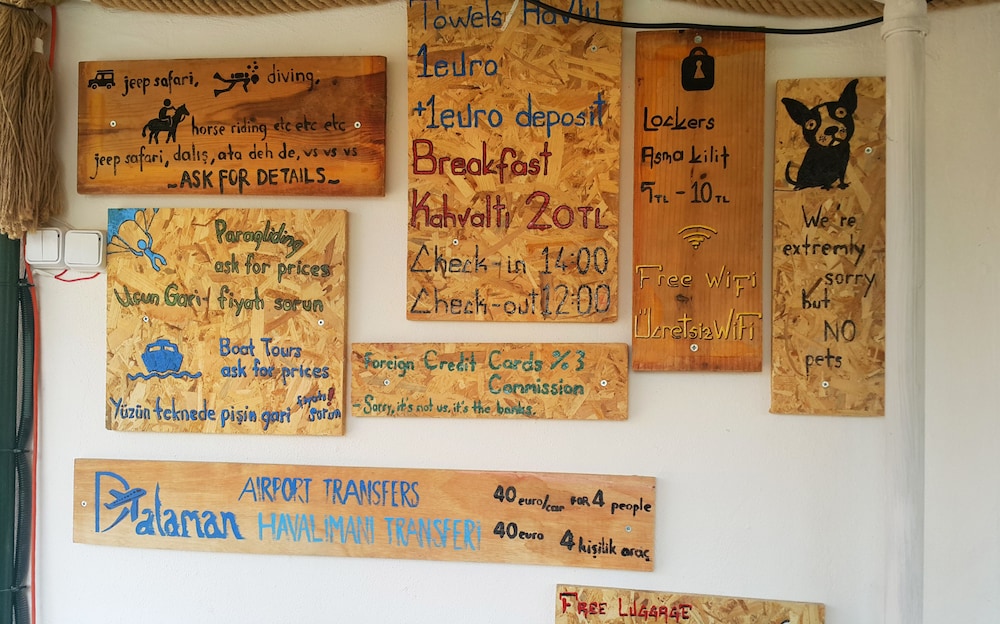 jeep safari, diving,
horse riding etc etc etc
jeep safari, dalış, ata deh de, vs vs vs
-ASK FOR DETAILS-
Towels Havlu
1euro
+1euro deposit
Breakfast
Kahvaltı 20TL
Check-in 14:00
Check-out 12:00
Lockers
Asma kilit
5TL - 10TL
Free WiFi
Ücretsiz WiFi
We're
extremly
sorry
but
NO
pets
Paragliding
ask for prices
Uçun Gari! fiyatı sorun
Boat Tours
ask for prices
Yüzün teknede pişin gari fiyatı! sorun
Foreign Credit Cards %3
Commission
- Sorry, it's not us, it's the banks.
Dalaman
AIRPORT TRANSFERS 40 euro/car FOR 4 people
HAVALIMANI TRANSFERi 40 euro 4 kişilik araç
FREE LUGGAGE